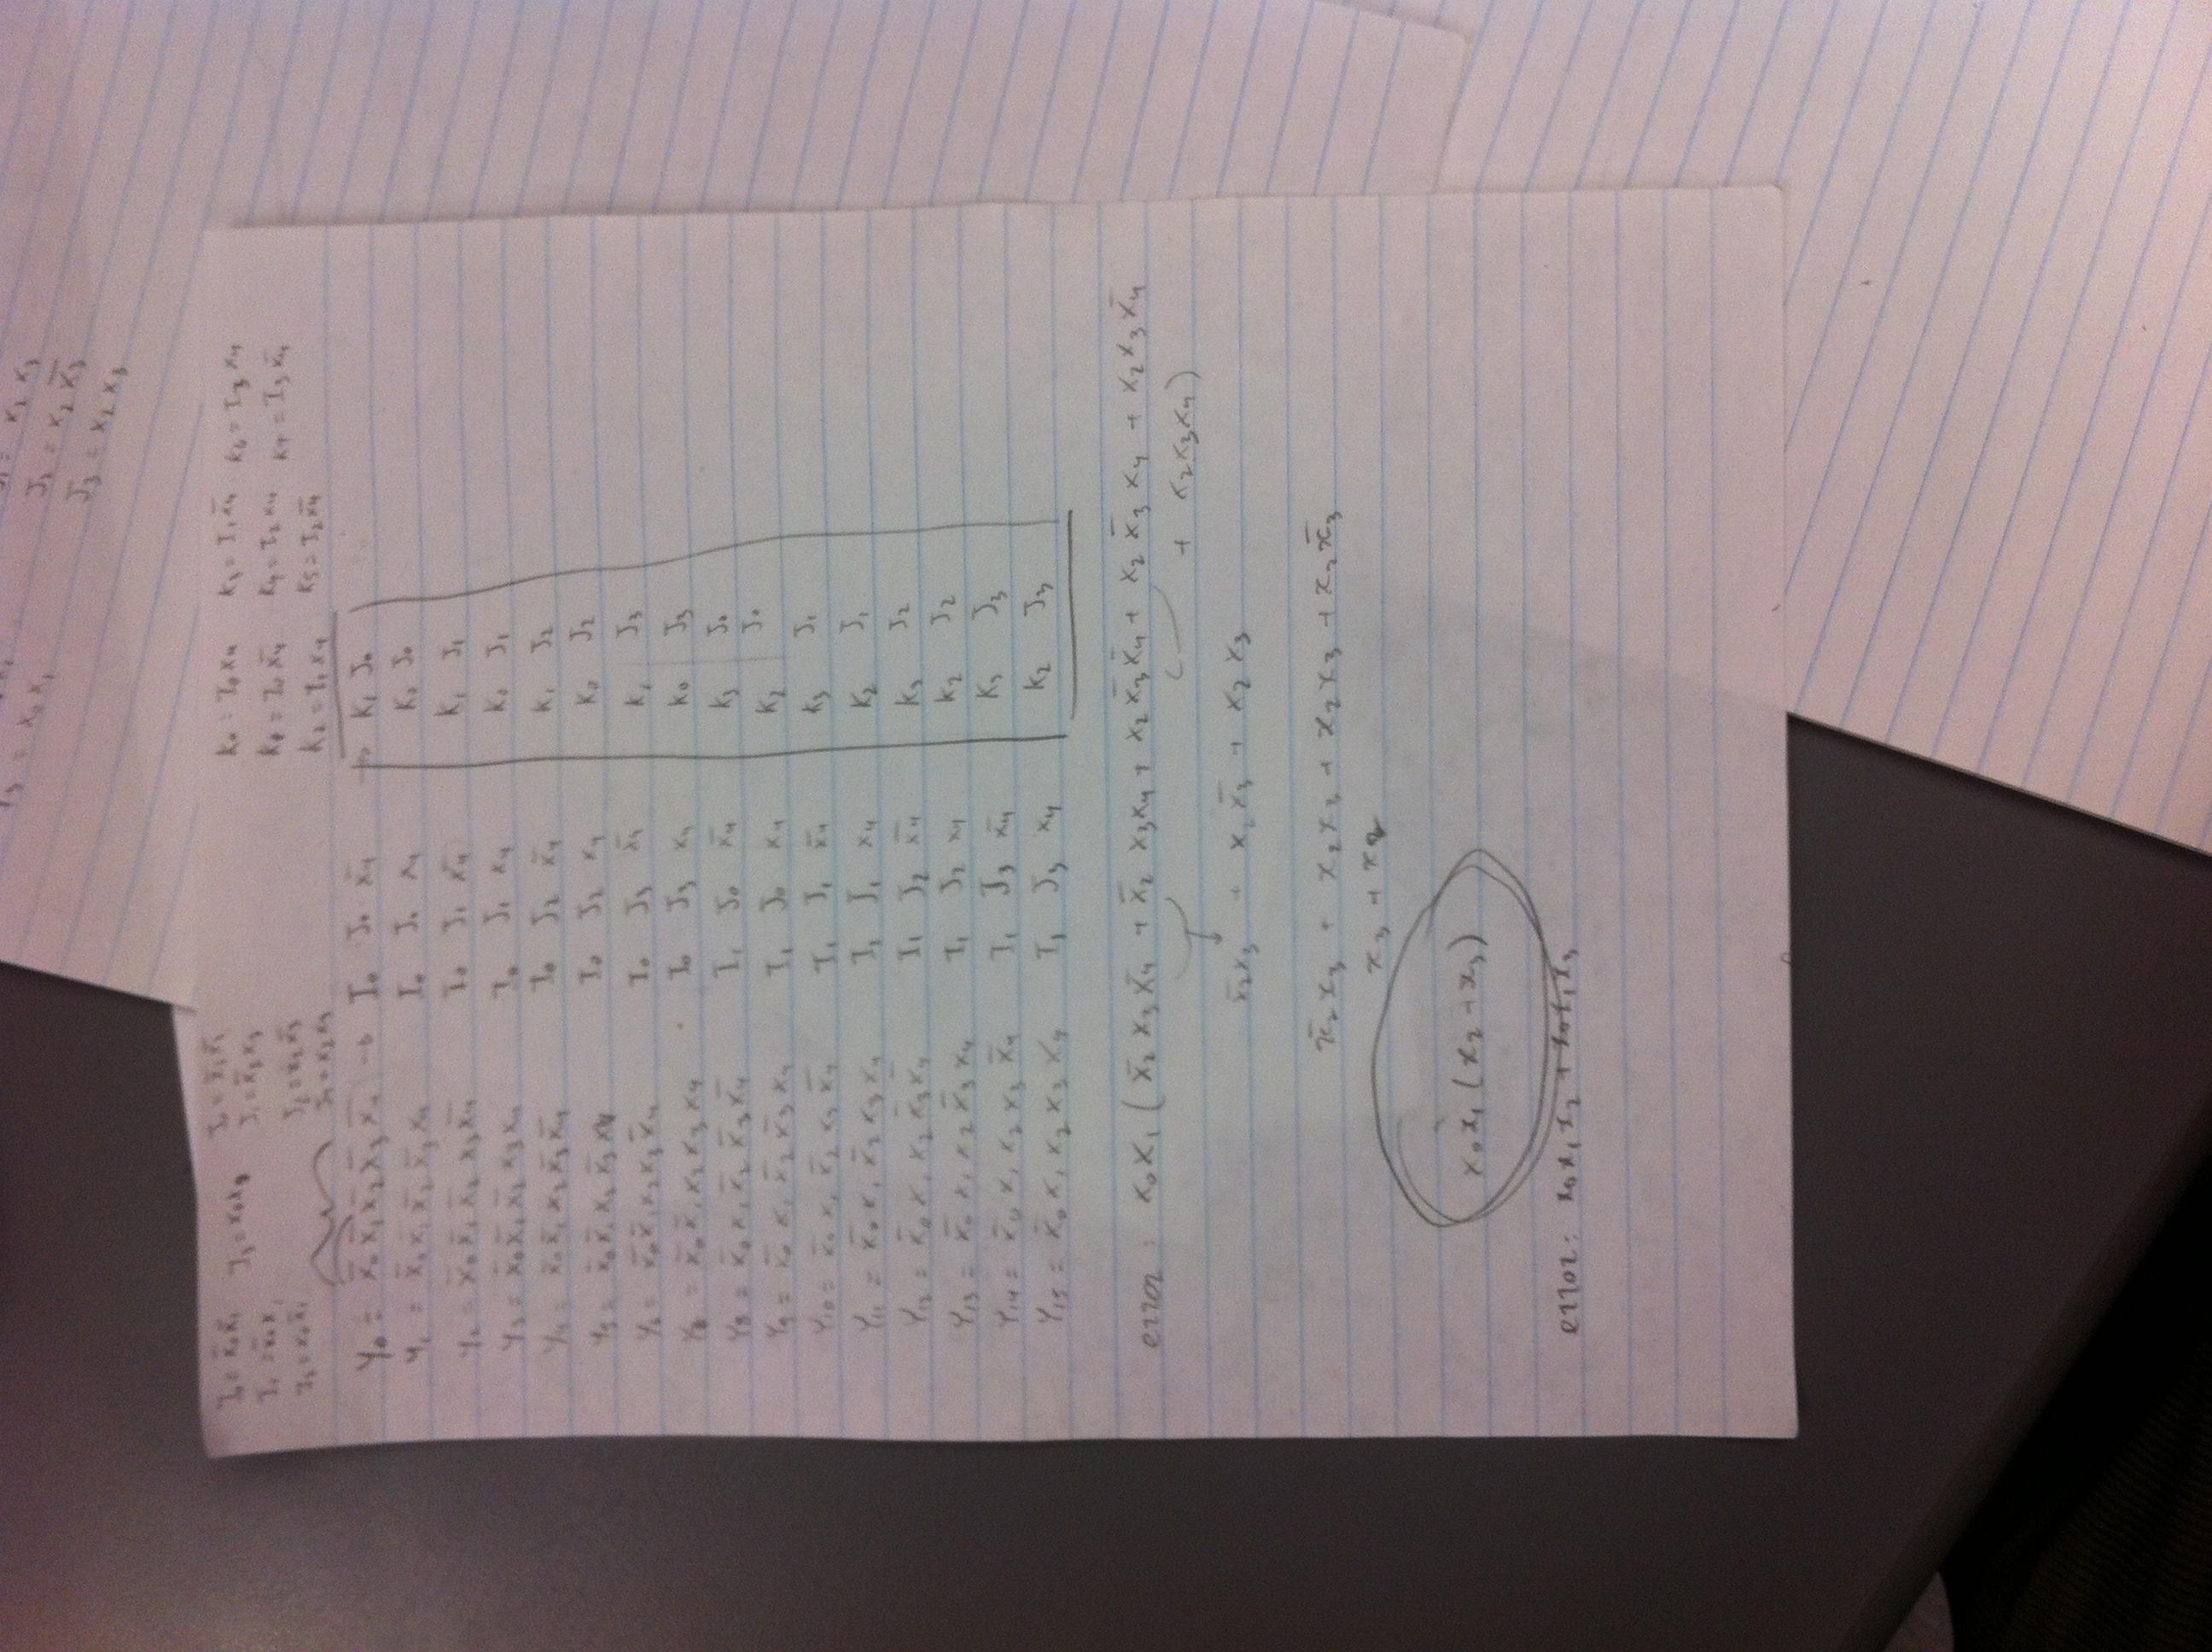 Y₃ = x₀ x₁
J₁ = x̄₂ x₃
J₂ = x₂ x̄₃
J₃ = x₂ x₃
I₀ = x̄₀x̄₁ I₃ = x₀x₁ J₀ = x̄₂x̄₃ K₀ = I₀x₄ K₃ = I₁x̄₄ K₆ = I₃x₄
I₁ = x̄₀x₁ J₁ = x̄₂x₃ K₁ = I₀x̄₄ K₄ = I₂x₄ K₇ = I₃x̄₄
I₂ = x₀x̄₁ J₂ = x₂x̄₃ K₂ = I₁x₄ K₅ = I₂x̄₄
J₃ = x₂x₃
Y₀ = x̄₀x̄₁x̄₂x̄₃x̄₄ → I₀ J₀ x̄₄ → K₁ J₀
Y₁ = x̄₀x̄₁x̄₂x̄₃x₄ I₀ J₀ x₄ K₀ J₀
Y₂ = x̄₀x̄₁x̄₂x₃x̄₄ I₀ J₁ x̄₄ K₁ J₁
Y₃ = x̄₀x̄₁x̄₂x₃x₄ I₀ J₁ x₄ K₀ J₁
Y₄ = x̄₀x̄₁x₂x̄₃x̄₄ I₀ J₂ x̄₄ K₁ J₂
Y₅ = x̄₀x̄₁x₂x̄₃x₄ I₀ J₂ x₄ K₀ J₂
Y₆ = x̄₀x̄₁x₂x₃x̄₄ I₀ J₃ x̄₄ K₁ J₃
Y₈ = x̄₀x̄₁x₂x₃x₄ I₀ J₃ x₄ K₀ J₃
Y₈ = x̄₀x₁x̄₂x̄₃x̄₄ I₁ J₀ x̄₄ K₃ J₀
Y₉ = x̄₀x₁x̄₂x̄₃x₄ I₁ J₀ x₄ K₂ J₀
Y₁₀ = x̄₀x₁x̄₂x₃x̄₄ I₁ J₁ x̄₄ K₃ J₁
Y₁₁ = x̄₀x₁x̄₂x₃x₄ I₁ J₁ x₄ K₂ J₁
Y₁₂ = x̄₀x₁x₂x̄₃x̄₄ I₁ J₂ x̄₄ K₃ J₂
Y₁₃ = x̄₀x₁x₂x̄₃x₄ I₁ J₂ x₄ K₂ J₂
Y₁₄ = x̄₀x₁x₂x₃x̄₄ I₁ J₃ x̄₄ K₃ J₃
Y₁₅ = x̄₀x₁x₂x₃x₄ I₁ J₃ x₄ K₂ J₃
error: x₀x₁(x̄₂x₃x̄₄ + x̄₂x₃x₄ + x₂x̄₃x̄₄ + x₂x̄₃x₄ + x₂x₃x̄₄
+ x₂x₃x₄)
x̄₂x₃ + x₂x̄₃ + x₂x₃
x̄₂x₃ + x₂x₃ + x₂x₃ + x₂x̄₃
x₃ + x₂
x₀x₁(x₂+x₃)
error: x₀x₁x₂ + x₀x₁x₃